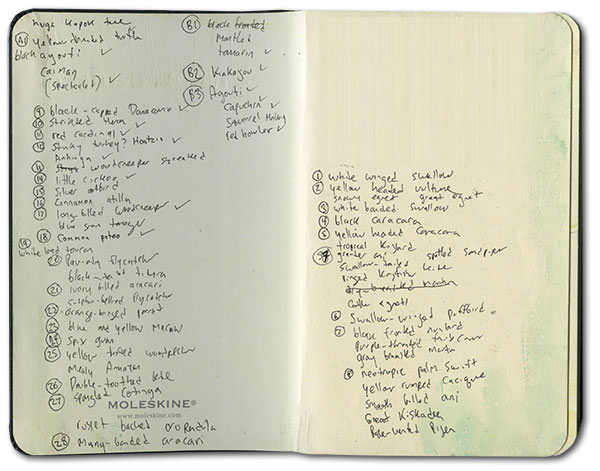 huge kapok tree
A1 yellow
black agouti ✓
Caiman
(spectacled) ✓
9 black-capped Donacobius ✓
10 striated Heron
11 red cardinal ✓
12 stinky turkey? Hoatzin ✓
Anhinga ✓
woodcreeper
14 little cuckoo ✓
15 Silver
16 Cinnamon attila ✓
17 long billed woodcreeper ✓
blue gray tanager
18 Common potoo ✓
19 white toucan
20 flycatcher
black-tityra
21 ivory billed aracari
sulphur-bellied flycatcher
23 orange-winged parrot
22 blue and yellow macaw
24 Spix guan
25 yellow tufted woodpecker
Mealy Amazon
26 Double-toothed kite
27 spangled Cotinga
MOLESKINE®
www.moleskine.com
russet backed oropendola
28 Many-banded aracari
B1 black
mantled
tamarin ✓
B2 Kinkajou ✓
B3 Agouti ✓
Capuchin ✓
Squirrel Monkey ✓
red howler ✓
1 white winged swallow
2 yellow headed vulture
snowy egret great egret
3 white banded swallow
4 black caracara
5 yellow headed Caracara
tropical
greater ani spotted sandpiper
swallow-tailed kite
ringed
Cattle egrets
6 Swallow-winged Puffbird
7 black fronted nunbird
Purple-throated fruit crow
gray
8 neotropic palm swift
yellow rumped Cacique
smooth billed ani
Great Kiskadee
Pale-vented Pigeon